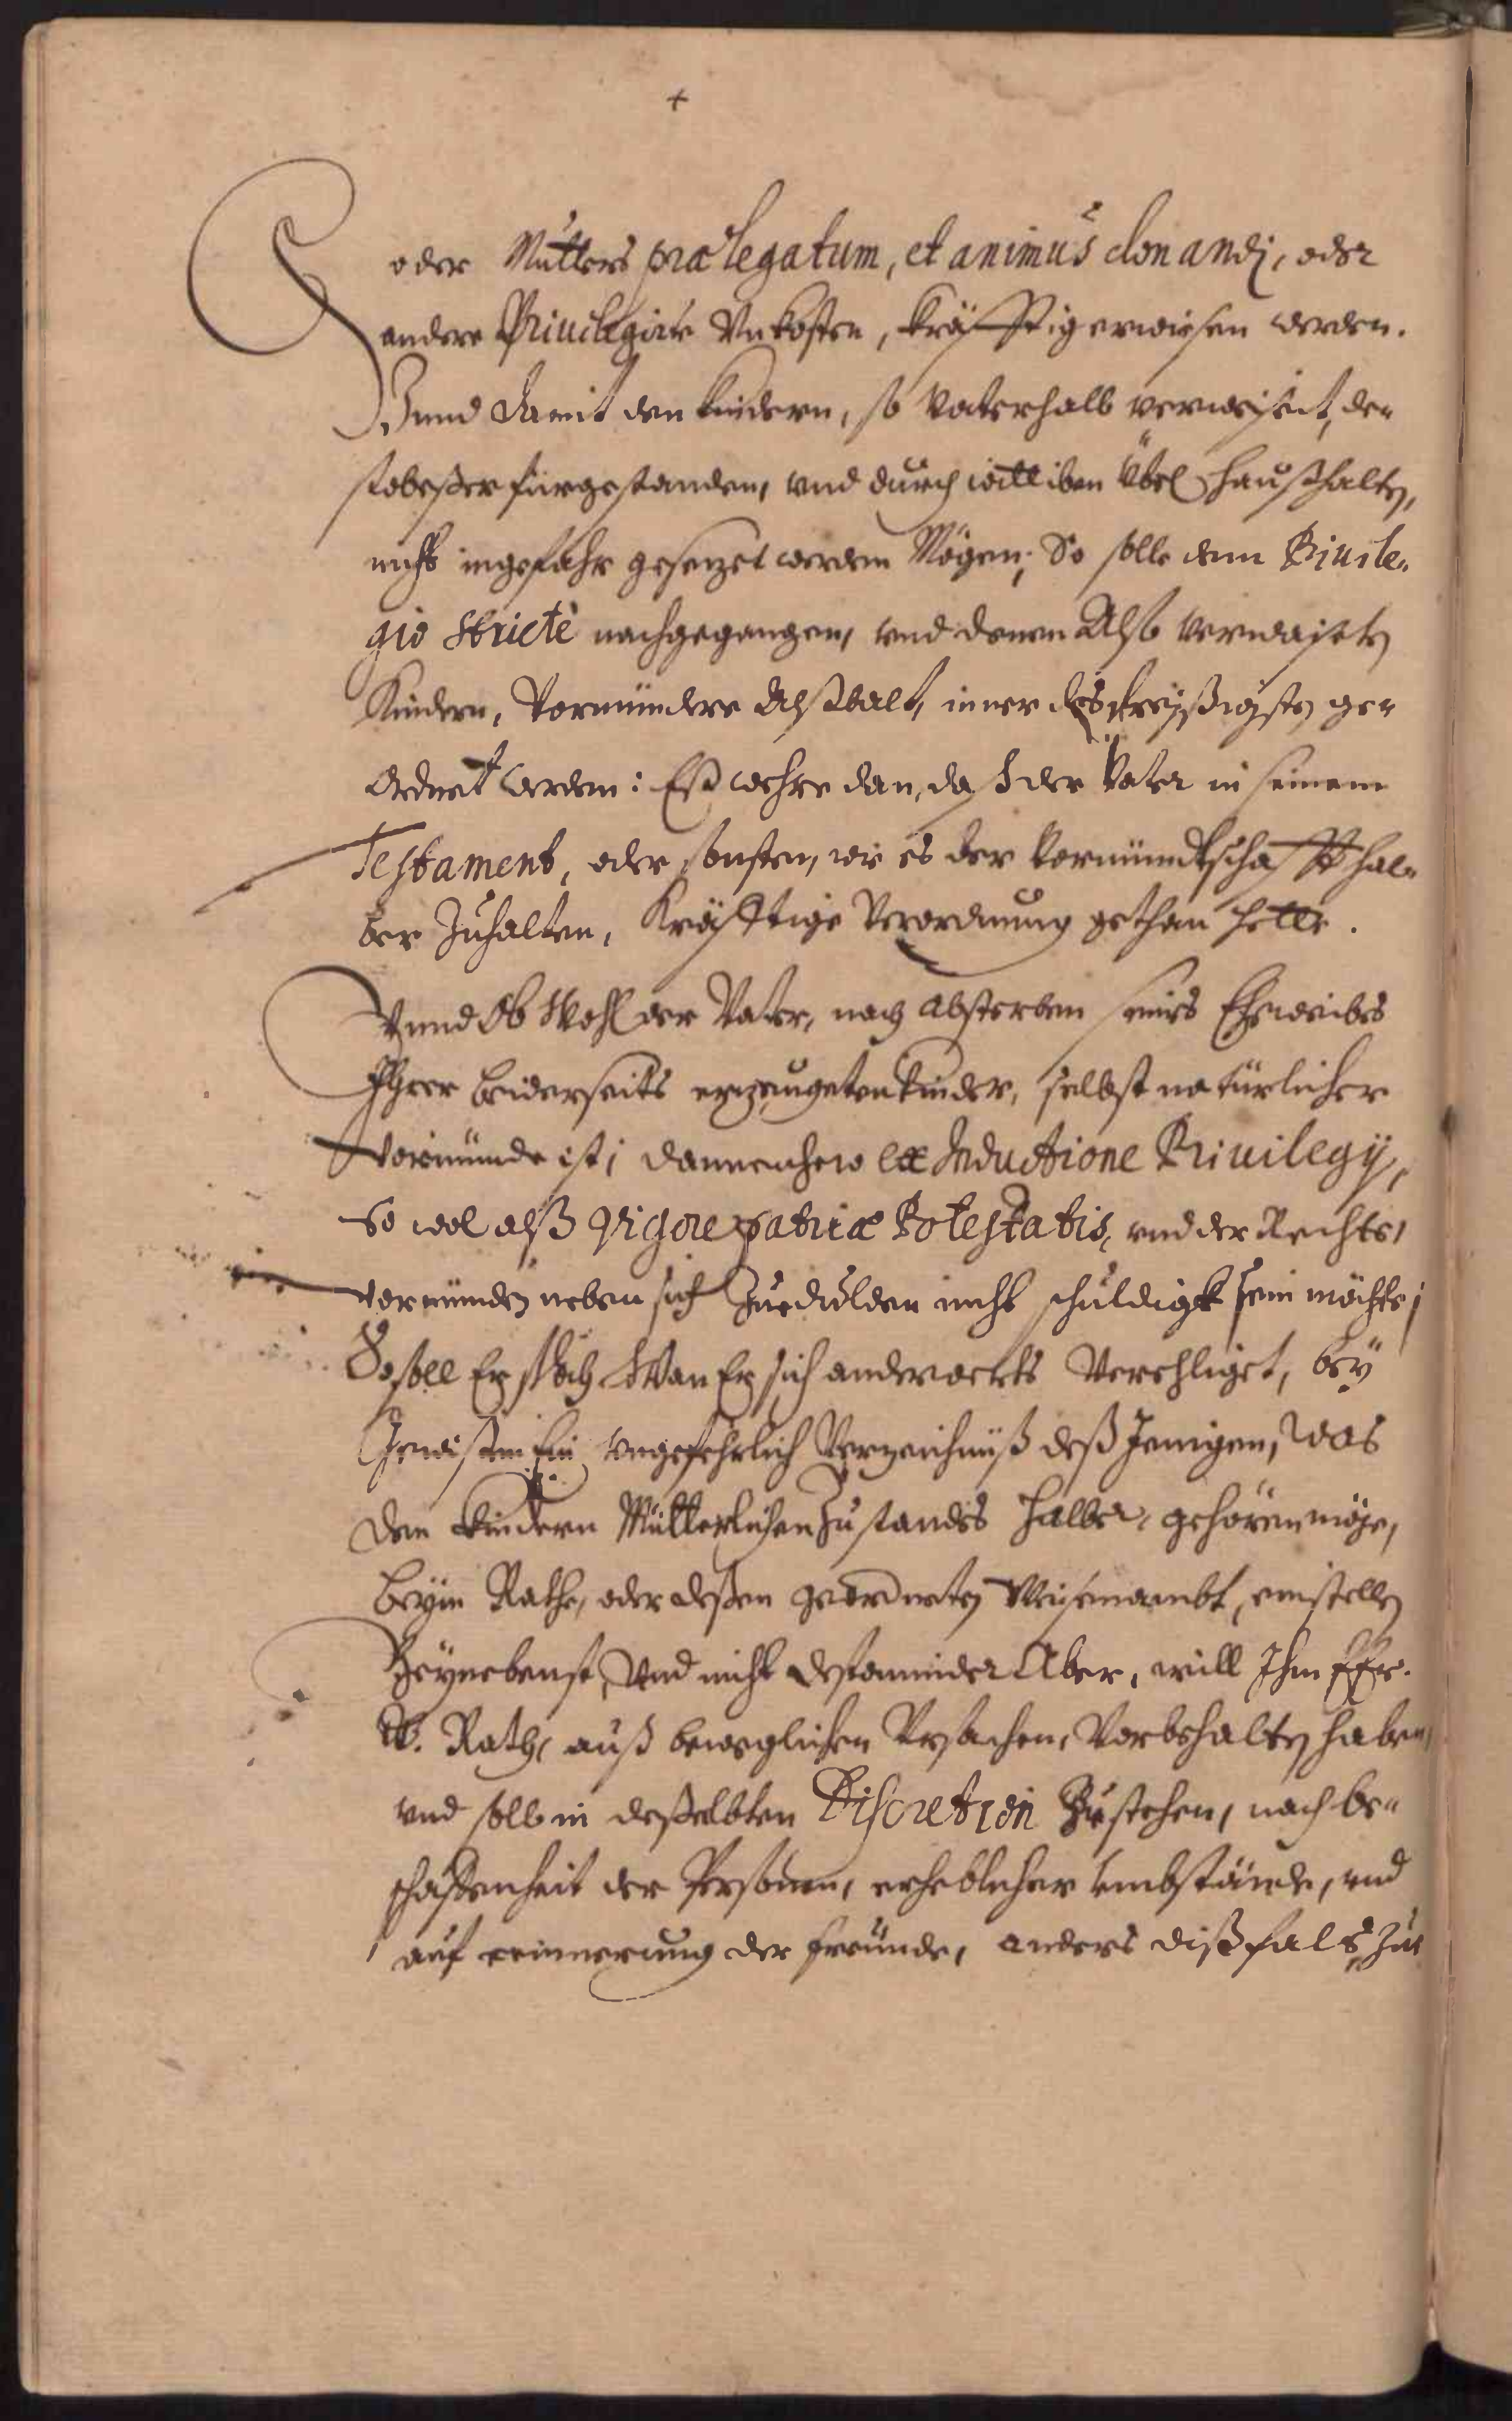 +
oder Mutters prælegatum, et animus donandi, oder
andere Privilegirte Vnkosten, kräfftig erwiesen werden.
Vnnd damit den kindern, so Vaterhalb verweiset, de„
stobeßer fürgestanden, vnd durch wittiben Übel Haußhalten,
nicht in gefahr gesetzet werden Mögen; So solle dem Privile„
gio strictè nachgegangen, vnd denen Also verwaiseten
Kindern, Vormündere Alßbalt, inner des dreyßigsten ge„
ordnet werden: Eß wehre dan, daß der Vater in seinem
Testament, oder sonsten, wie es der Vormündtschafft hal„
ber Zuhalten, Kräfftige Verordnung gethan hette.
Vnnd Ob Wohl der Vater, nach absterben seines Eheweibes
Ihrer beiderseits erzeugeten kinder, selbst natürlicher
Vormunde ist; dannenhero ex Inductione Privilegij,
So wol alß Vigore patriæ Potestatis, vnd der Rechte,
Vormünden neben sich Zuedulden nicht schuldigk sein möchte;
So soll Er doch Wan Er sich anderwerts Verehliget, bey
Gewissen Ein vngefehrlich Verzeichnüß deß Jenigen, Was
den kindern Mütterlichen Zustandes halber, gehören möge,
beym Rathe, oder deßen geordneten Weisenambt, einstellen
Beynebenst, Vnd nicht destominder Aber, will Ihm
W. Rath, auß beweglichen Vrsachen, Vorbehalten haben,
vnd soll in deßelbten Discretion Zustehen, nach be„
schaffenheit der Personen, erheblicher vmbstände, vnd
auf erinnerung der freunde, anders dißfals Zue